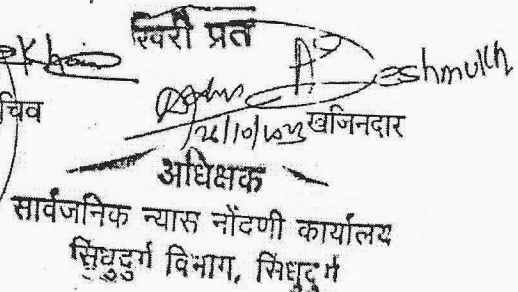 खरी प्रत
Deshmukh
सचिव
खजिनदार
अधिक्षक
सार्वजनिक न्यास नोंदणी कार्यालय
सिंधुदुर्ग विभाग, सिंधुदुर्ग